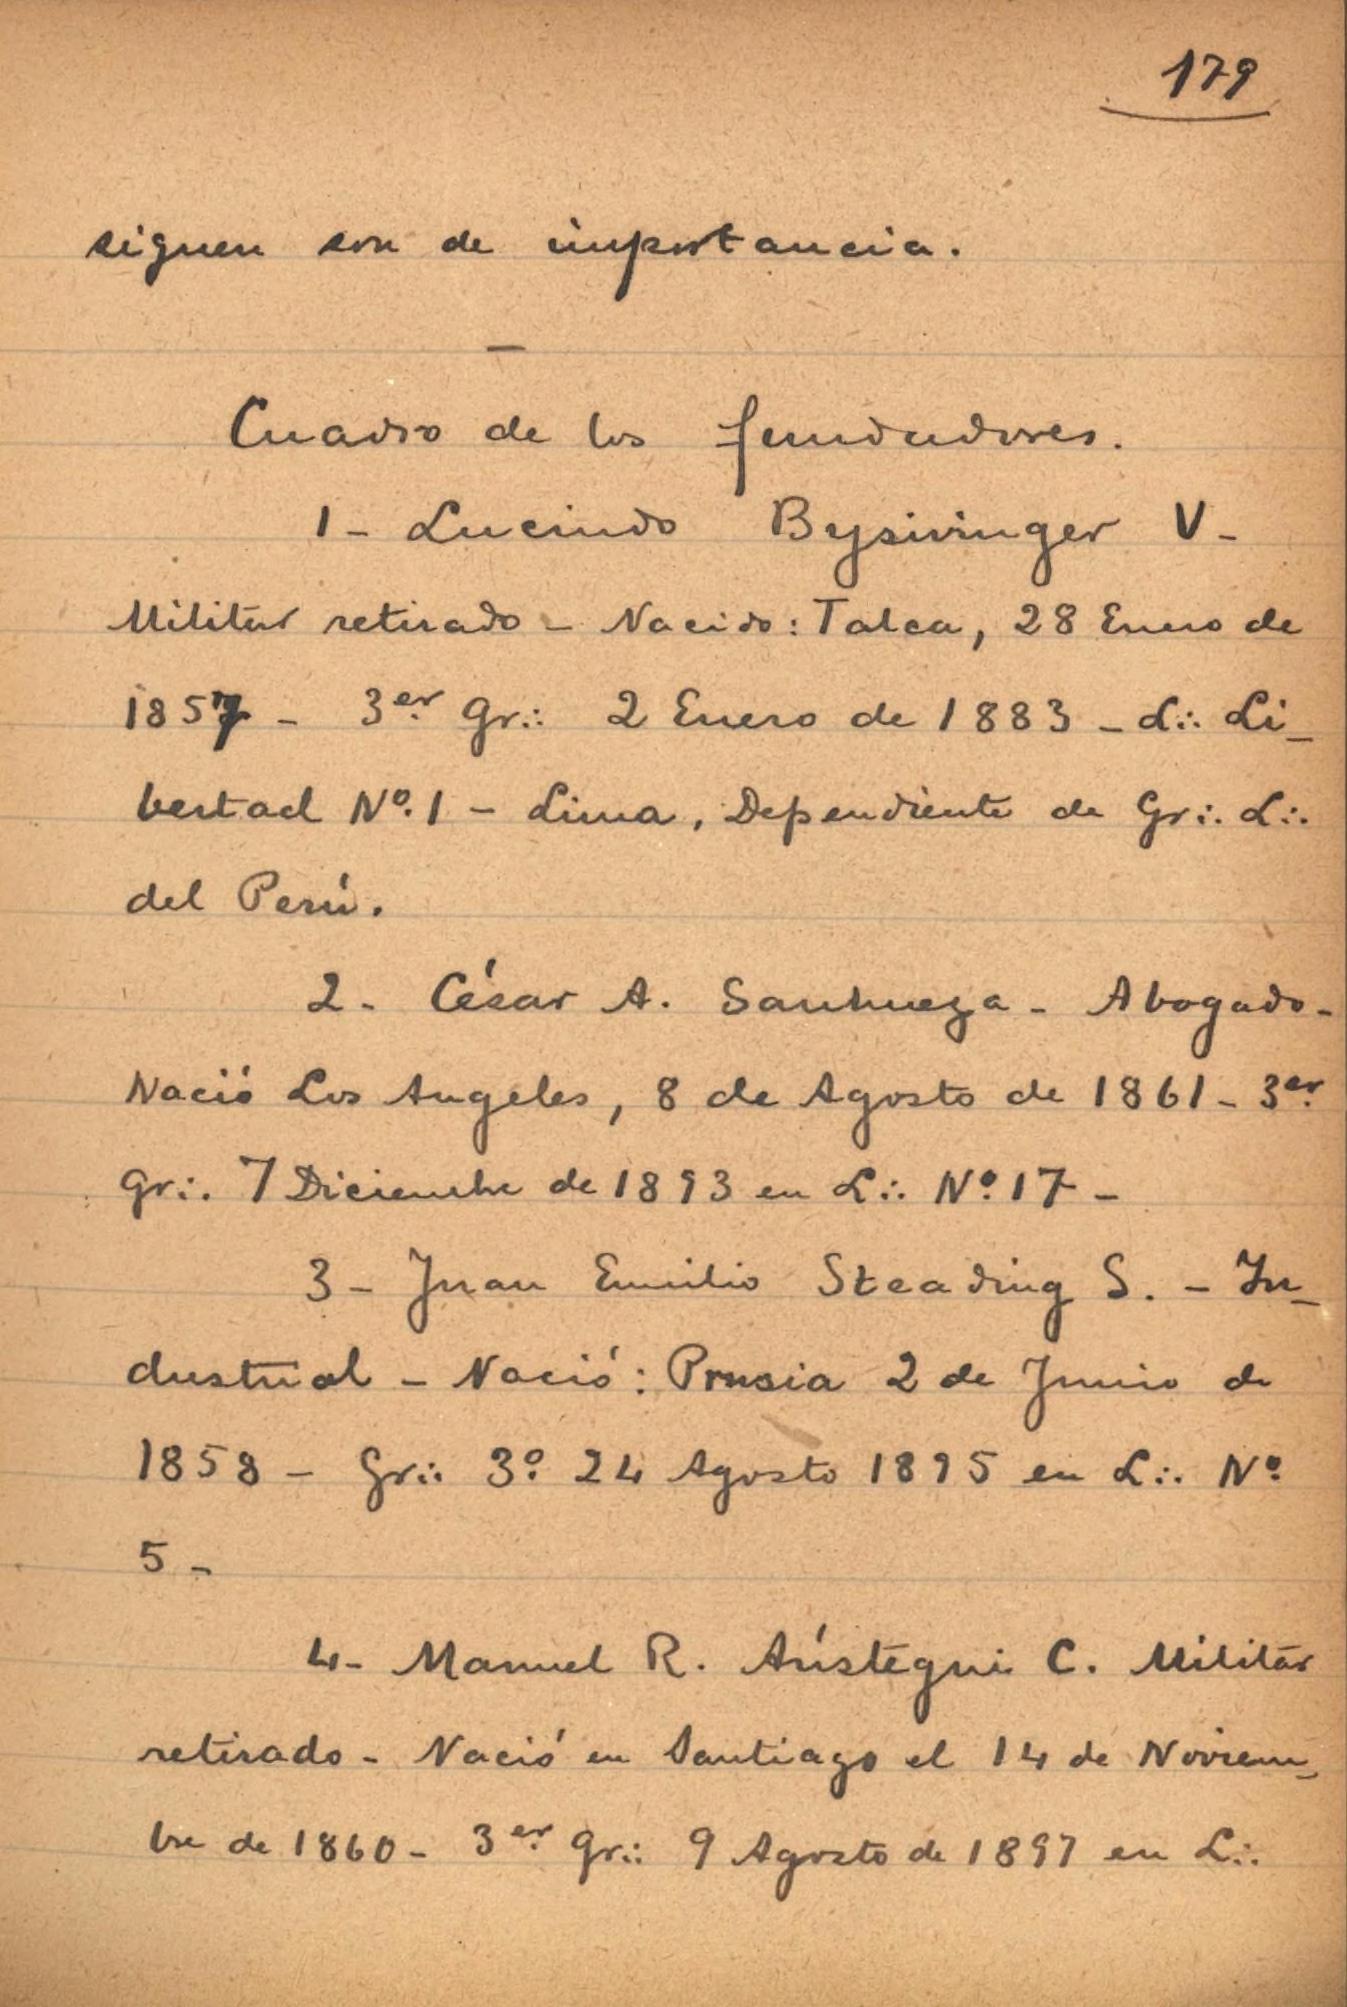 179
siguen son de importancia.
—
Cuadro de los fundadores.
1- Lucindo Bysivinger V-
Militar retirado - Nacido: Talca, 28 Enero de
1857 - 3er Gr∴ 2 Enero de 1883 - L∴ Li-
bertad Nº. 1 - Lima, Dependiente de Gr∴ L∴
del Perú.
2- César A. Sanhueza - Abogado-
Nació Los Angeles, 8 de Agosto de 1861 - 3er
Gr∴ 7 Diciembre de 1893 en L∴ Nº 17 -
3- Juan Emilio Steading S. - In-
dustrial - Nació: Prusia 2 de Junio de
1858 - Gr∴ 3º 24 Agosto 1895 en L∴ Nº
5 -
4- Manuel R. Arístegui C. Militar
retirado - Nació en Santiago el 14 de Noviem-
bre de 1860 - 3er Gr∴ 9 Agosto de 1897 en L∴